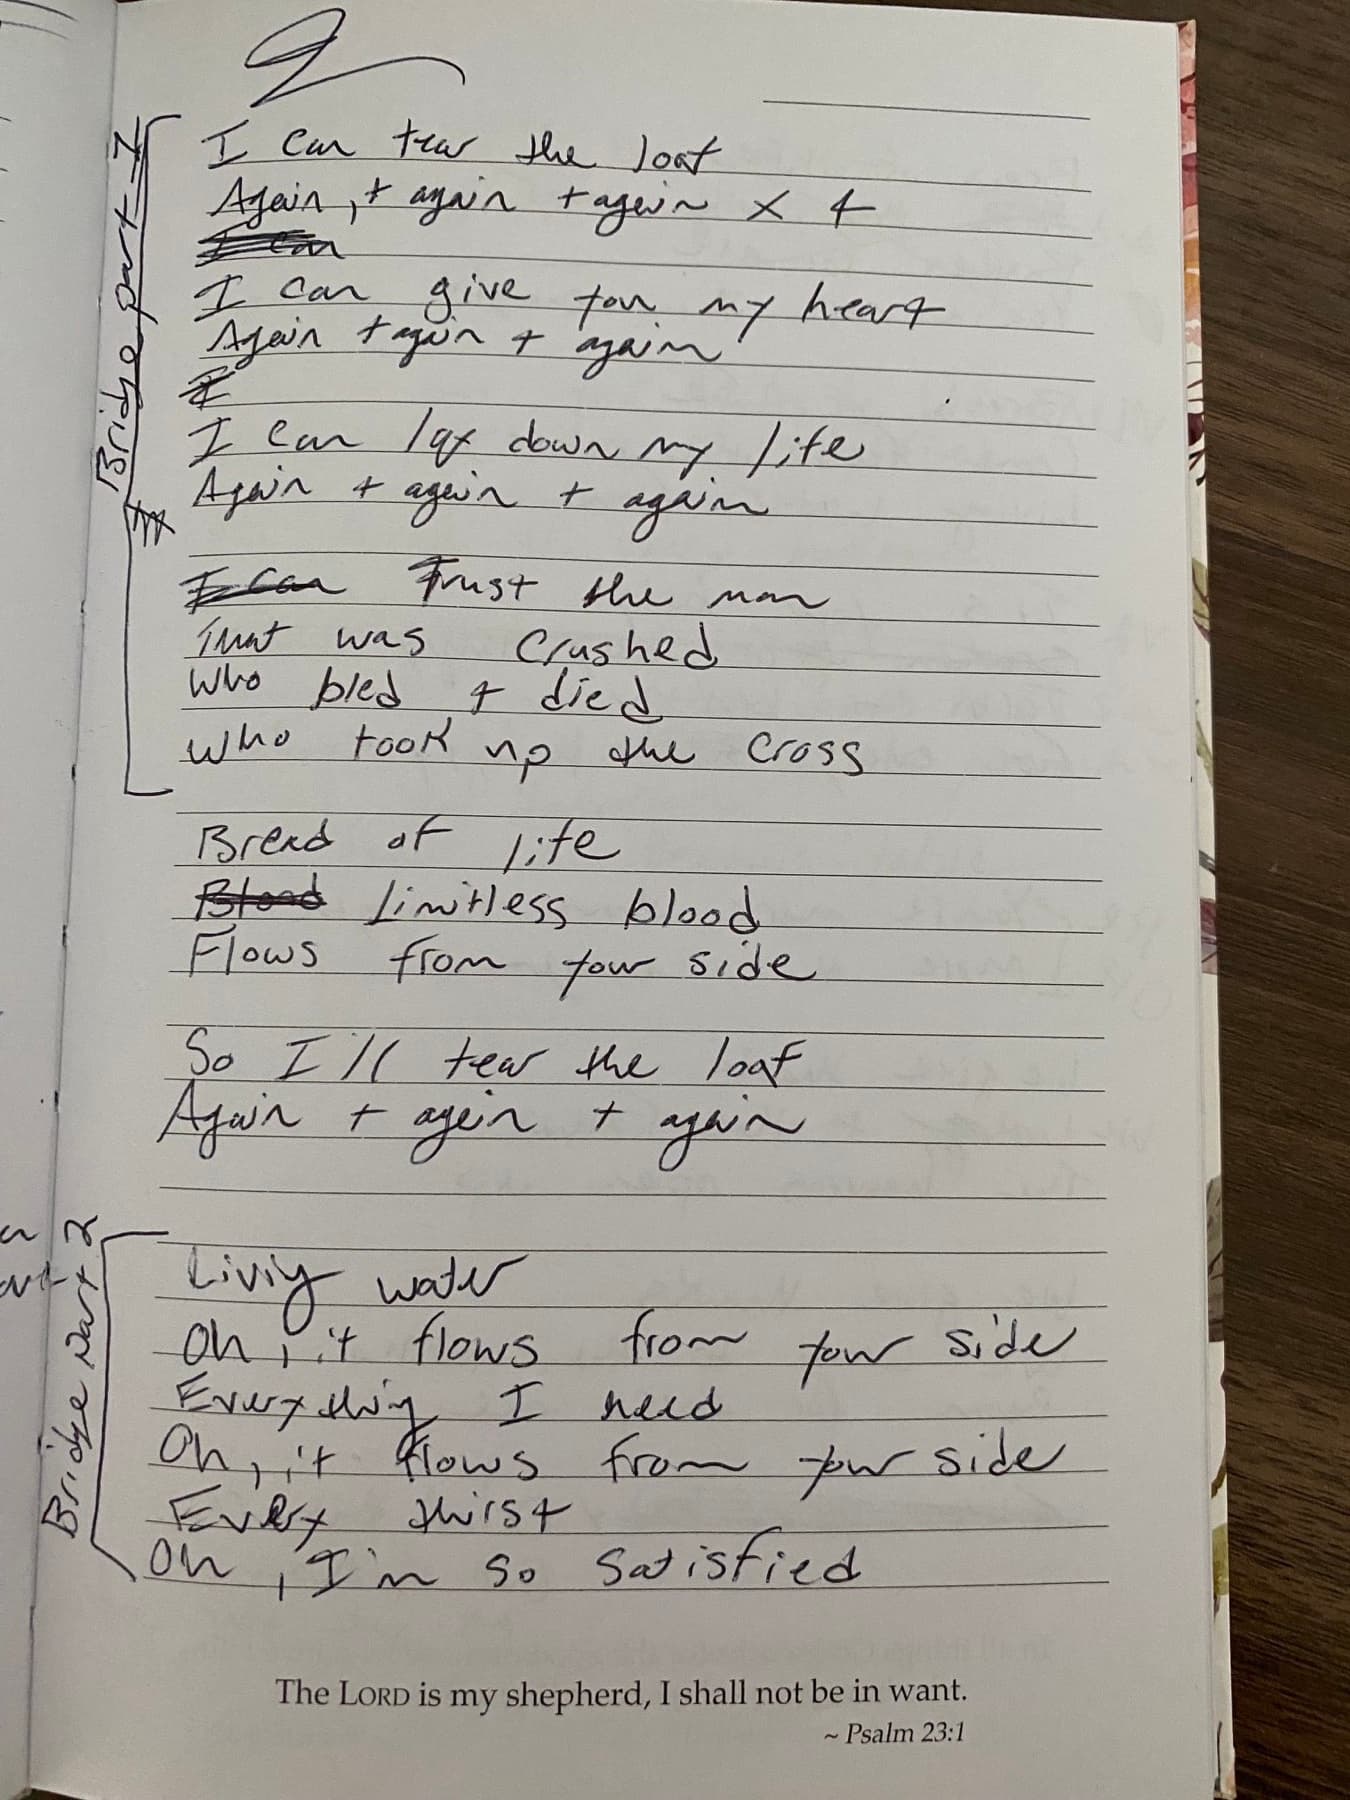 2
Bridge part 1
I can tear the loaf
Again, + again + again x 4
I can
I can give you my heart
Again + again + again
I
I can lay down my life
Again + again + again
I can Trust the man
That was crushed
Who bled + died
Who took up the cross
Bread of life
Blood limitless blood
Flows from your side
So I'll tear the loaf
Again + again + again
Bridge part 2
Living water
Oh, it flows from your side
Everything I need
Oh, it flows from your side
Every thirst
Oh, I'm so satisfied
The LORD is my shepherd, I shall not be in want.
~ Psalm 23:1